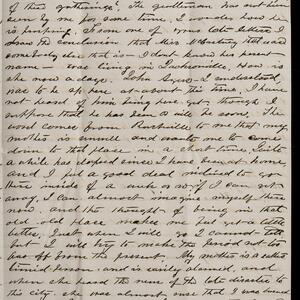 of their gatherings". The gentleman has not been
seen by me for some time, I wonder how he
is prospering. From one of your late letters I
draw the conclusion that Miss
somebody else that is — I
name — was living in Jacksonville. How is
she now a days. John I understood,
was to be up here at about this time, I have
not heard of him being here yet, though I
suppose that he has been or will be soon. The
word comes from Rockville to me that my
mother is unwell and wants me to come
down to that place in a short time. Quite
a while has elapsed since I have been at home,
and I feel a good deal inclined to go
there inside of a week or so if I can get
away. I can almost imagine myself there
now, and the thought of being in that
old old place, makes me feel yet a little
better. Just when I will go I cannot tell
but I will try to make the period not too
far off from the present. My mother is a rather
timid person and is easily alarmed, and
when she heard the news of the late disaster to
this city, she was almost sure that I was